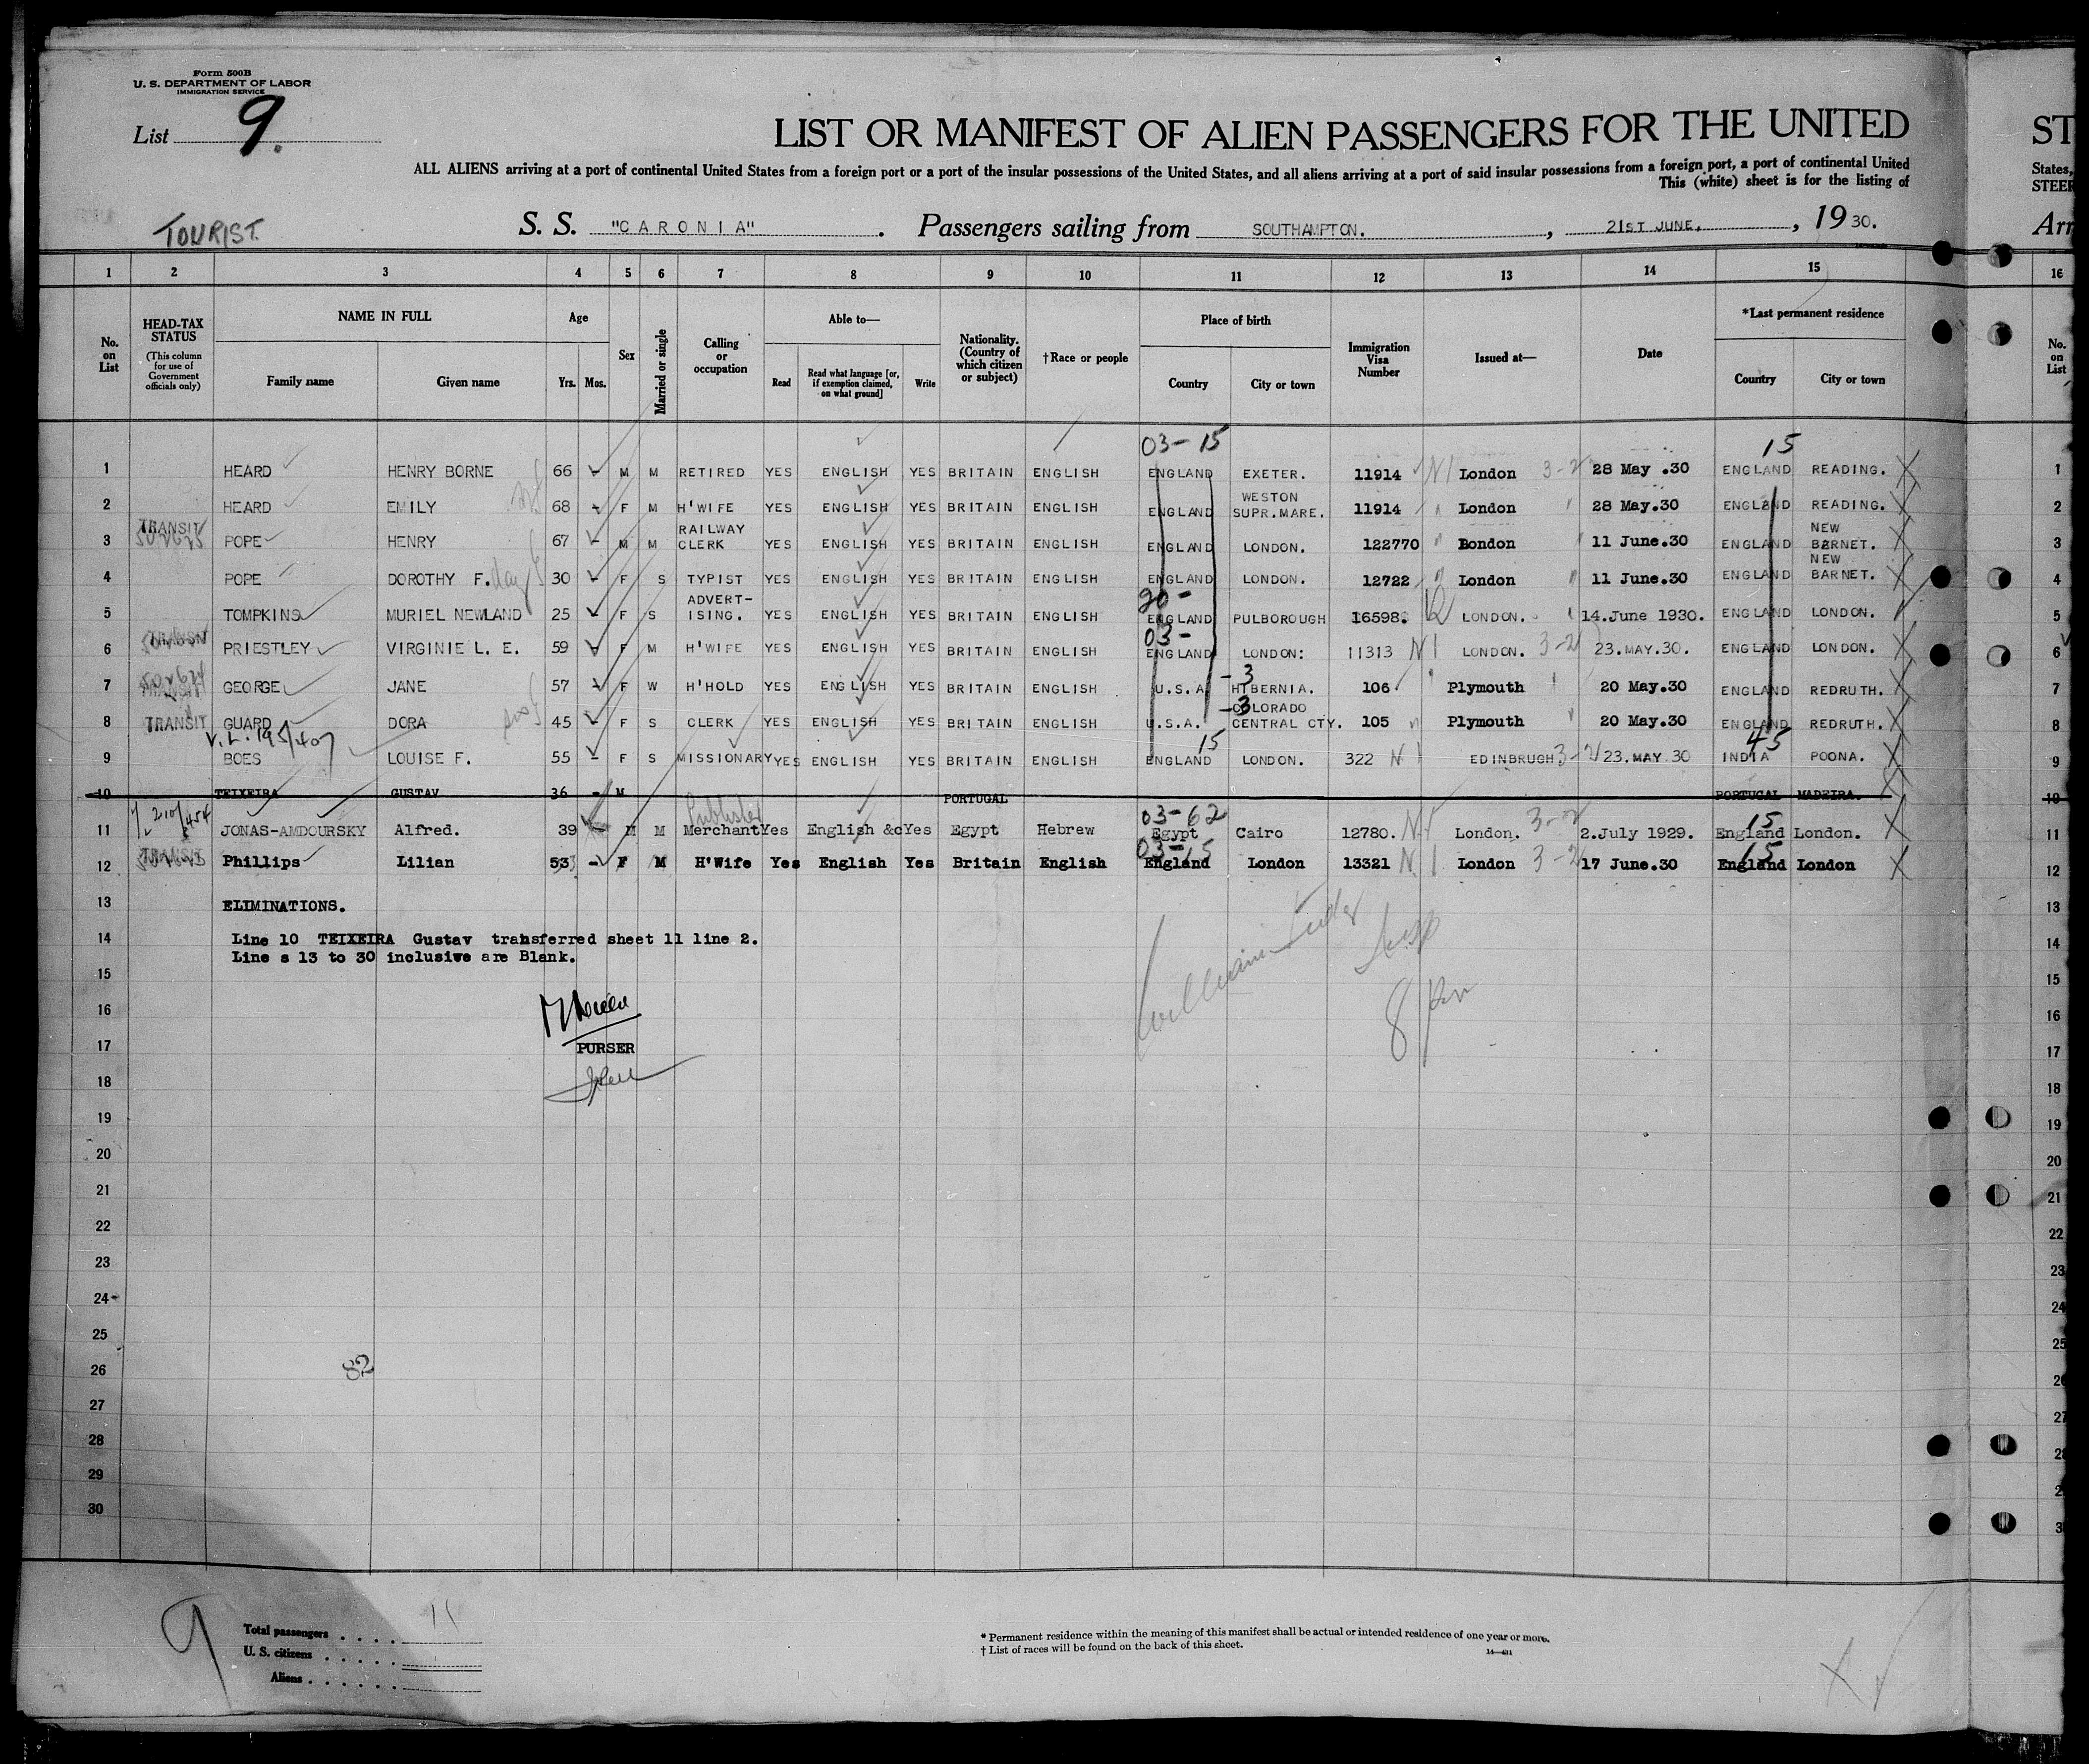 Form 500B
U. S. DEPARTMENT OF LABOR
IMMIGRATION SERVICE
List 9.
LIST OR MANIFEST OF ALIEN PASSENGERS FOR THE UNITED
ST
ALL ALIENS arriving at a port of continental United States from a foreign port or a port of the insular possessions of the United States, and all aliens arriving at a port of said insular possessions from a foreign port, a port of continental United
States,
This (white) sheet is for the listing of
STEER
TOURIST.
S. S. "CARONIA". Passengers sailing from SOUTHAMPTON., 21ST JUNE., 1930.
Arr
1 2 3 4 5 6 7 8 9 10 11 12 13 14 15 16
No. on List
HEAD-TAX STATUS
(This column for use of Government officials only)
NAME IN FULL
Family name Given name
Age
Yrs. Mos.
Sex
Married or single
Calling or occupation
Able to—
Read
Read what language [or, if exemption claimed, on what ground]
Write
Nationality. (Country of which citizen or subject)
†Race or people
Place of birth
Country City or town
Immigration Visa Number
Issued at—
Date
*Last permanent residence
Country City or town
No. on List
03-15 15
1 HEARD HENRY BORNE 66 - M M RETIRED YES ENGLISH YES BRITAIN ENGLISH ENGLAND EXETER. 11914 N1 London 3-2 28 May .30 ENGLAND READING. X 1
2 HEARD EMILY 68 - F M H'WIFE YES ENGLISH YES BRITAIN ENGLISH ENGLAND WESTON SUPR.MARE. 11914 " London " 28 May.30 ENGLAND READING. X 2
3 TRANSIT POPE HENRY 67 - M M RAILWAY CLERK YES ENGLISH YES BRITAIN ENGLISH ENGLAND LONDON. 122770 " Bondon " 11 June.30 ENGLAND NEW BARNET. X 3
4 POPE DOROTHY F. 30 - F S TYPIST YES ENGLISH YES BRITAIN ENGLISH ENGLAND LONDON. 12722 " London " 11 June.30 ENGLAND NEW BARNET. X 4
5 TOMPKINS MURIEL NEWLAND 25 F S ADVERT-ISING. YES ENGLISH YES BRITAIN ENGLISH 20- ENGLAND PULBOROUGH 16598. LONDON. 14.June 1930. ENGLAND LONDON. 5
6 PRIESTLEY VIRGINIE L. E. 59 F M H'WIFE YES ENGLISH YES BRITAIN ENGLISH 03- ENGLAND LONDON: 11313 N1 LONDON. 3-2 23.MAY.30. ENGLAND LONDON. X 6
7 TRANSIT GEORGE JANE 57 - F W H'HOLD YES ENGLISH YES BRITAIN ENGLISH U.S.A -3 HIBERNIA. 106 " Plymouth " 20 May.30 ENGLAND REDRUTH. X 7
8 TRANSIT GUARD DORA 45 - F S CLERK YES ENGLISH YES BRITAIN ENGLISH U.S.A. -3 COLORADO CENTRAL CTY. 105 " Plymouth " 20 May.30 ENGLAND REDRUTH. X 8
V.L. 195/407
9 BOES LOUISE F. 55 - F S MISSIONARY YES ENGLISH YES BRITAIN ENGLISH 15 ENGLAND LONDON. 322 N1 EDINBRUGH 3-2 23.MAY 30 45 INDIA POONA. X 9
10 TEIXEIRA GUSTAV 36 - M PORTUGAL PORTUGAL MADEIRA. 10
210/454
11 JONAS-AMDOURSKY Alfred. 39 - M M Publisher Merchant Yes English &c Yes Egypt Hebrew 03-62 Egypt Cairo 12780. N1 London. 3-2 2.July 1929. 15 England London. X 11
12 TRANSIT Phillips Lilian 53 - F M H'Wife Yes English Yes Britain English 03-15 England London 13321 N1 London 3-2 17 June.30 15 England London X 12
13 ELIMINATIONS. 13
14 Line 10 TEIXEIRA Gustav transferred sheet 11 line 2. 14
Line s 13 to 30 inclusive are Blank.
15 15
16 16
17 PURSER 17
8 pm
18 18
19 19
20 20
21 21
22 22
23 23
24 24
25 25
26 82
27 27
28
29
30
9
Total passengers . . . . 11
U. S. citizens . . . . .
Aliens . . . . . .
* Permanent residence within the meaning of this manifest shall be actual or intended residence of one year or more.
† List of races will be found on the back of this sheet.